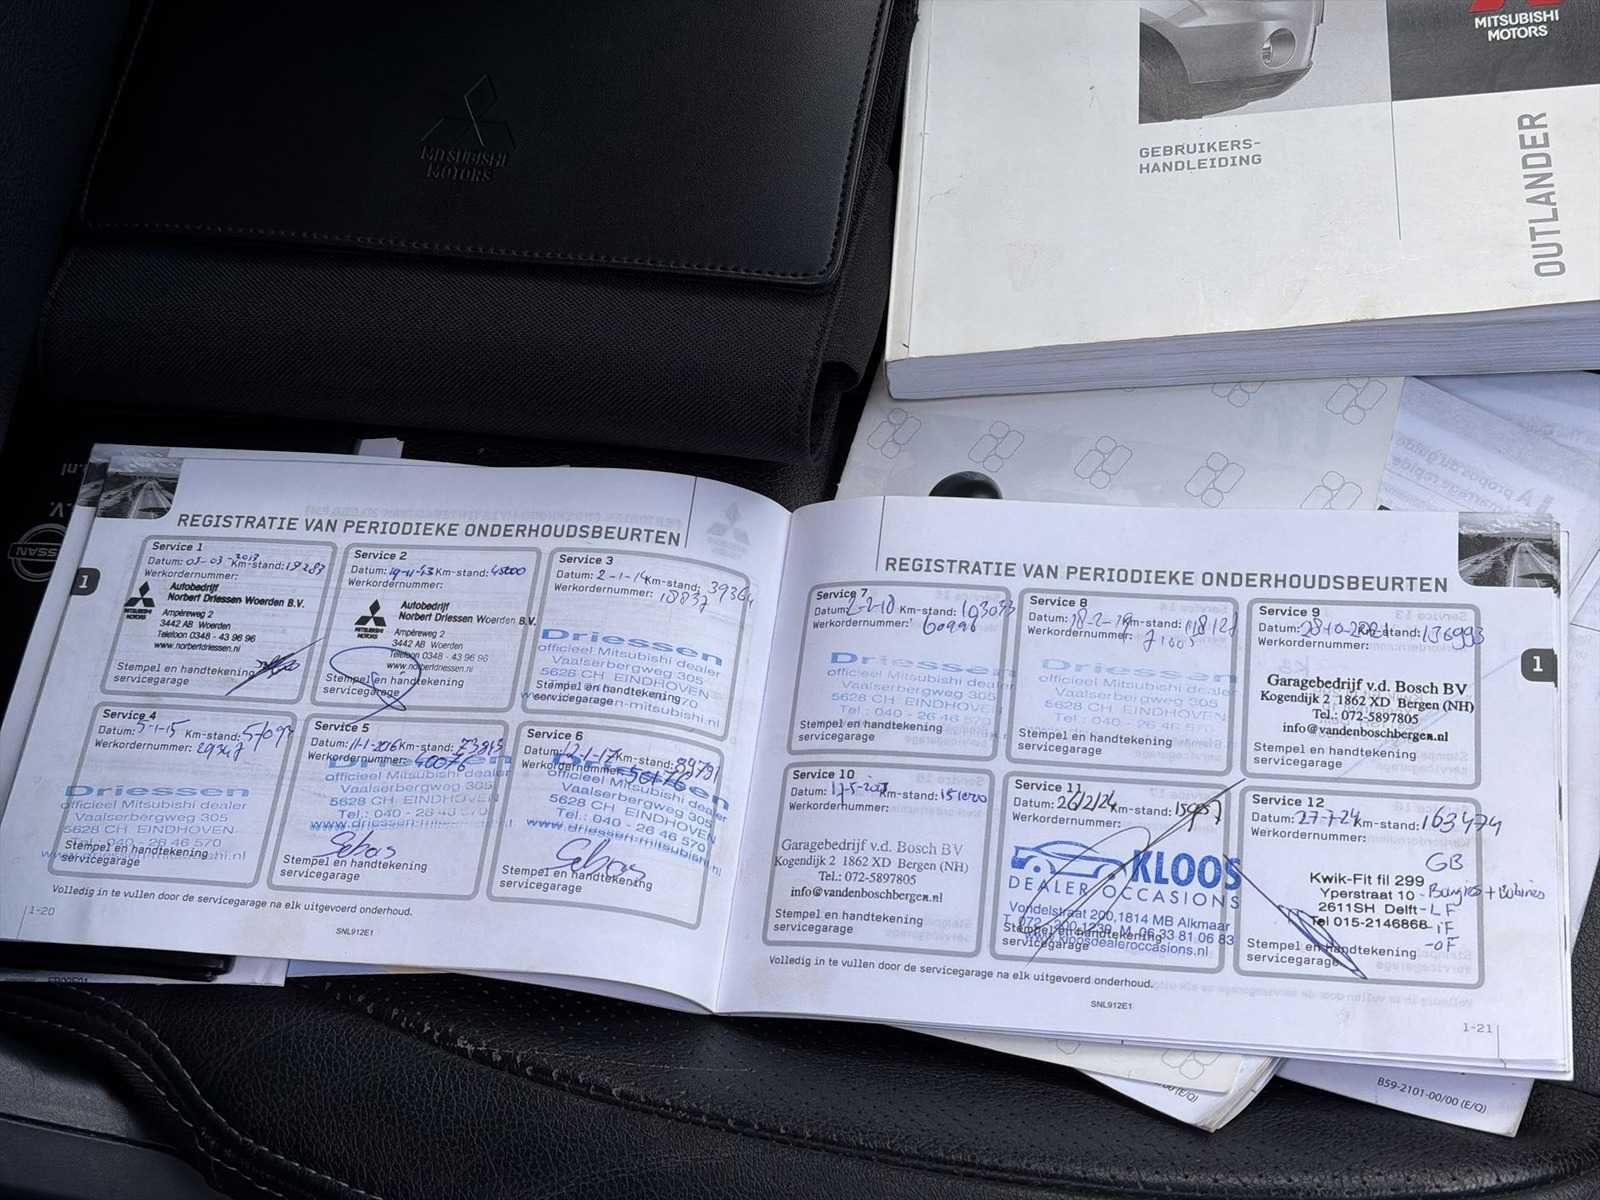 MITSUBISHI
MOTORS
MITSUBISHI
MOTORS
GEBRUIKERS-
HANDLEIDING
OUTLANDER
NISSAN
REGISTRATIE VAN PERIODIEKE ONDERHOUDSBEURTEN
1
Service 1
Datum: Km-stand:
Werkordernummer:
Autobedrijf
Norbert Driessen Woerden B.V.
Ampèreweg 2
3442 AB Woerden
Telefoon 0348 - 43 96 96
www.norbertdriessen.nl
MITSUBISHI
MOTORS
Stempel en handtekening
servicegarage
Service 2
Datum: Km-stand: 45000
Werkordernummer:
Autobedrijf
Norbert Driessen Woerden B.V.
Ampèreweg 2
3442 AB Woerden
Telefoon 0348 - 43 96 96
www.norbertdriessen.nl
MITSUBISHI
MOTORS
Stempel en handtekening
servicegarage
Service 3
Datum: 2-1-14 Km-stand: 39364
Werkordernummer: 18837
Driessen
officieel Mitsubishi dealer
Vaalserbergweg 305
5628 CH EINDHOVEN
Stempel en handtekening
servicegarage
Service 4
Datum: 5-1-15 Km-stand:
Werkordernummer: 29347
Driessen
officieel Mitsubishi dealer
Vaalserbergweg 305
5628 CH EINDHOVEN
Stempel en handtekening
servicegarage
Service 5
Datum: 11-1-2016 Km-stand: 73845
Werkordernummer: 40076
Driessen
officieel Mitsubishi dealer
Vaalserbergweg 305
5628 CH EINDHOVEN
Tel.: 040 - 26 46 570
www.driessen-mitsubishi.nl
Stempel en handtekening
servicegarage
Service 6
Datum: 12-1-17 Km-stand: 89791
Werkordernummer:
Driessen
officieel Mitsubishi dealer
Vaalserbergweg 305
5628 CH EINDHOVEN
Tel.: 040 - 26 46 570
www.driessen-mitsubishi.nl
Stempel en handtekening
servicegarage
Volledig in te vullen door de servicegarage na elk uitgevoerd onderhoud.
1-20
SNL912E1
REGISTRATIE VAN PERIODIEKE ONDERHOUDSBEURTEN
1
Service 7
Datum: 2-2-18 Km-stand: 103033
Werkordernummer: 60996
Driessen
officieel Mitsubishi dealer
Vaalserbergweg 305
5628 CH EINDHOVEN
Tel.: 040 - 26 46 570
Stempel en handtekening
servicegarage
Service 8
Datum: 18-2-19 Km-stand:
Werkordernummer: 71005
Driessen
officieel Mitsubishi dealer
Vaalserbergweg 305
5628 CH EINDHOVEN
Tel.: 040 - 26 46 570
Stempel en handtekening
servicegarage
Service 9
Datum: 28-10-2021 Km-stand: 136993
Werkordernummer:
Garagebedrijf v.d. Bosch BV
Kogendijk 2 1862 XD Bergen (NH)
Tel.: 072-5897805
info@vandenboschbergen.nl
Stempel en handtekening
servicegarage
Service 10
Datum: Km-stand: 151000
Werkordernummer:
Garagebedrijf v.d. Bosch BV
Kogendijk 2 1862 XD Bergen (NH)
Tel.: 072-5897805
info@vandenboschbergen.nl
Stempel en handtekening
servicegarage
Service 11
Datum: 26/2/24 Km-stand:
Werkordernummer:
KLOOS
DEALER OCCASIONS
Vondelstraat 200, 1814 MB Alkmaar
T. 072 - 200 1230 M. 06 33 81 06 83
www.kloosdealeroccasions.nl
Stempel en handtekening
servicegarage
Service 12
Datum: 27-7-24 Km-stand: 163474
Werkordernummer:
GB
Kwik-Fit fil 299
Yperstraat 10 - Bougies + Bobines
2611SH Delft - LF
Tel 015-2146868 - iF
- OF
Stempel en handtekening
servicegarage
Volledig in te vullen door de servicegarage na elk uitgevoerd onderhoud.
SNL912E1
1-21
B59-2101-00/00 (E/Q)